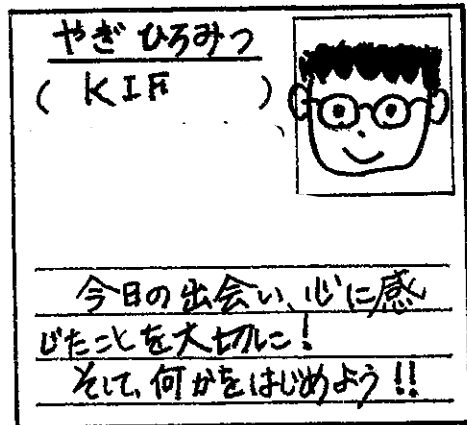 やぎ ひろみつ
( KIF )
今日の出会い、心に感
じたことを大切に!
そして、何かをはじめよう!!